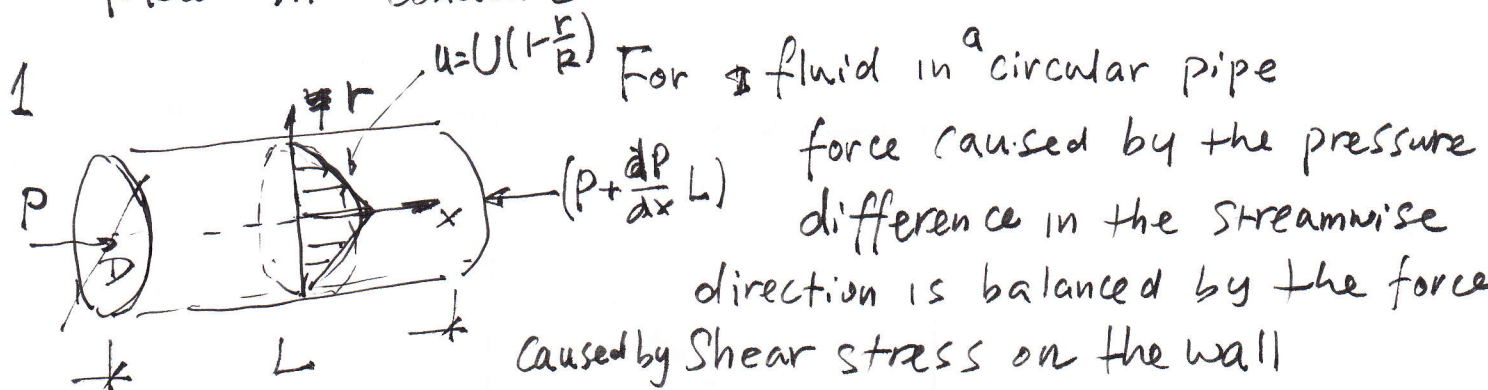 1
u=U(1-r/R) For fluid in a circular pipe
r
force caused by the pressure
P
(P+dP/dx L)
difference in the streamwise
x
D
direction is balanced by the force
L
caused by Shear stress on the wall